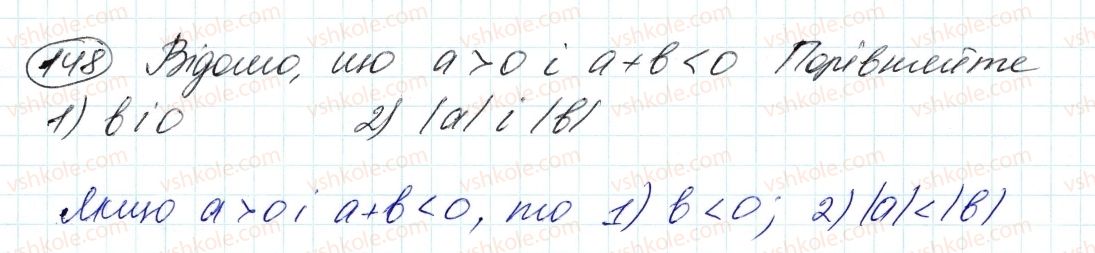 148 Відомо, що a>0 і a+b<0 Порівняйте
1) b і 0 2) |a| і |b|
Якщо a>0 і a+b<0, то 1) b<0; 2) |a|<|b|